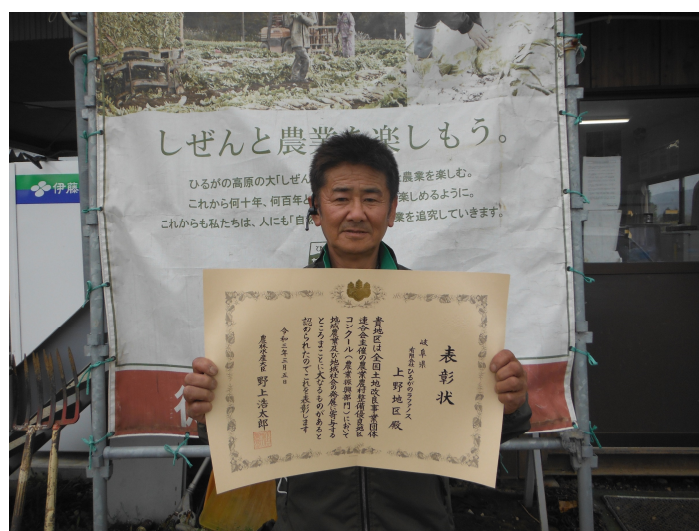 しぜんと農業を楽しもう。
ひるがの高原の大「しぜん
農業を楽しむ。
これから何十年、何百年と
楽しめるように。
これからも私たちは、人にも「自然
業を追究していきます。
伊藤
表彰状
岐阜県
有限会社ひるがのラファノス
上野地区殿
貴地区は全国土地改良事業団体
連合会主催の農業農村整備優良地区
コンクール(農業振興部門)において
地域農業及び地域社会の発展に寄与する
ところまことに大なるものがあると
認められたのでこれを表彰します
令和三年三月五日
農林水産大臣 野上浩太郎